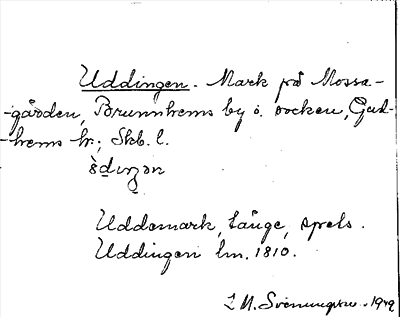 Uddingen. Mark på Mossa-
-gården, Brunnhems by o. socken, Gud-
-hems hr.; Skb. l.
Uddamark, Länge, spels.
Uddingen lm. 1810.
M. Svenungsson 1949